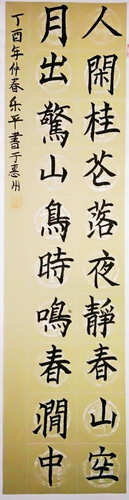 人閑桂花落夜靜春山空
月出驚山鳥時鳴春澗中
丁酉年仲春乐平書于惠州